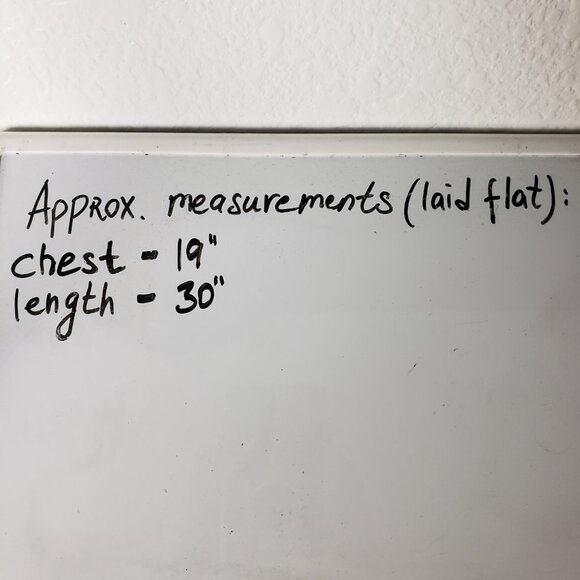 Approx. measurements (laid flat):
chest - 19"
length - 30"